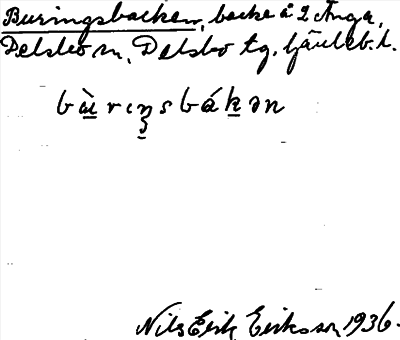 Buringsbacken, backe å 2 Ånga,
Delsbo sn, Delsbo tg. Gävleb. l.
bu̱̇̀riŋsbáḵən
Nils Erik Eriksson 1936.